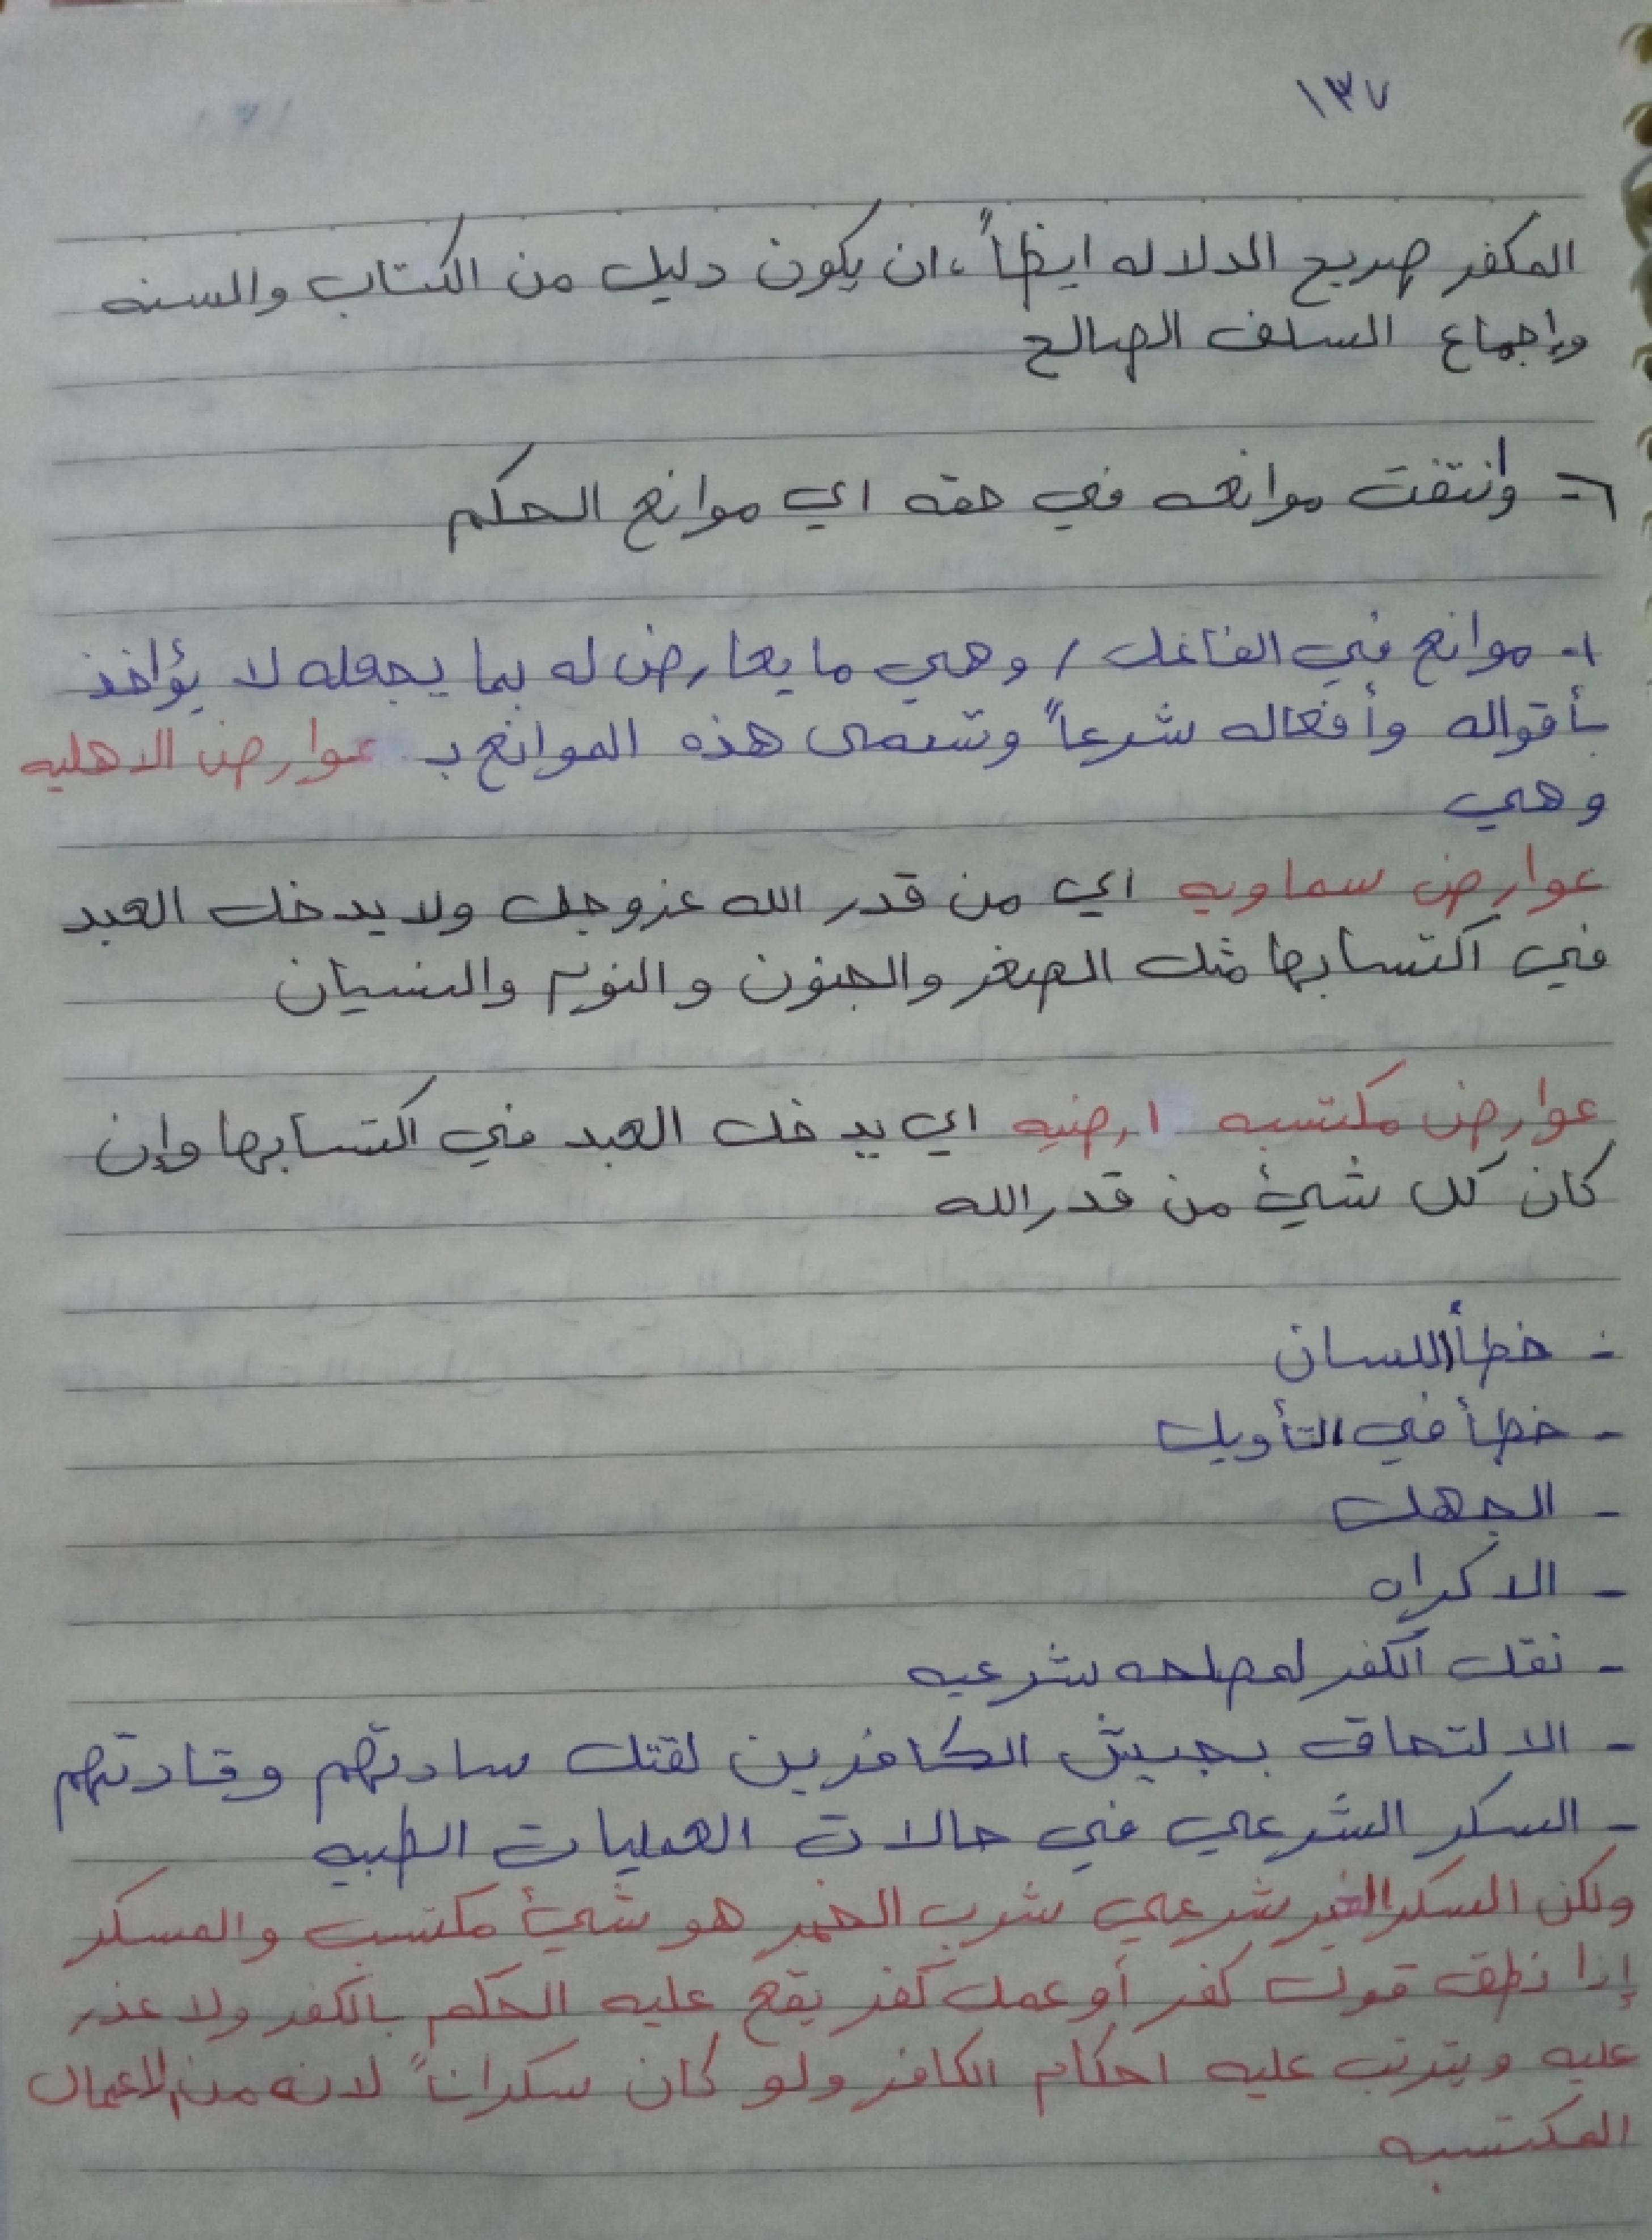 ١٣٧
المكفر صريح الدلاله ايظاً، ان يكون دليل من الكتاب والسنه
وإجماع السلف الصالح
٦- وانتفت موانعه في حقه اي موانع الحكم
١- موانع في الفاعل / وهي ما يعارض له بما يجعله لا يؤاخذ
بأقواله وأفعاله شرعاً وتسمى هذه الموانع بـ عوارض الاهليه
وهي
عوارض سماويه اي من قدر الله عزوجل ولا يدخل العبد
في اكتسابها مثل الصغر والجنون والنوم والنسيان
عوارض مكتسبه ارضيه اي يدخل العبد في اكتسابها وإن
كان كل شيئ من قدر الله
- خطأ اللسان
- خطأ في التأويل
- الجهل
- الاكراه
- نقل الكفر لمصلحه شرعيه
- الالتحاق بجيش الكافرين لقتل سادتهم وقادتهم
- السكر الشرعي في حالات العمليات الطبيه
ولكن السكر الغير شرعي شرب الخمر هو شيئ مكتسب والمسكر
إذا نطق قول كفر أو عمل كفر يقع عليه الحكم بالكفر ولا عذر
عليه ويترتب عليه احكام الكافر ولو كان سكراناً لانه من الاعمال
المكتسبه